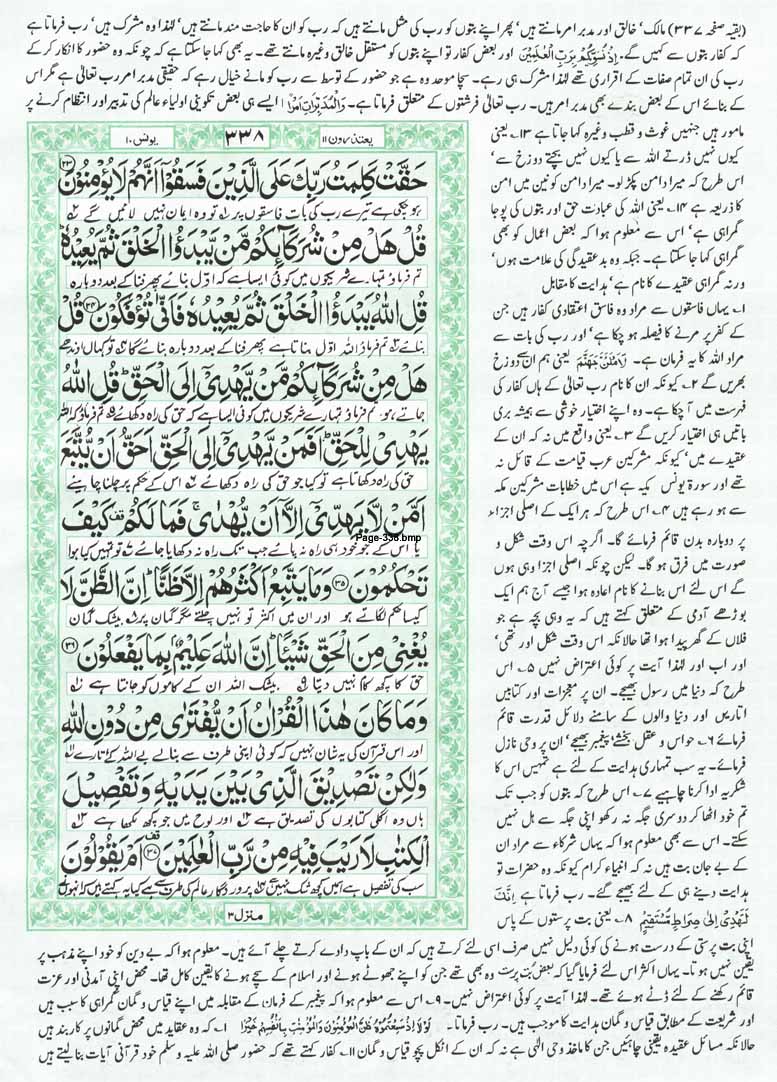 (بقیہ صفحہ ۳۳۷) مالک' خالق اور مدبر امر مانتے ہیں' پھر اپنے بتوں کو رب کی مثل مانتے ہیں کہ رب کو ان کا حاجت مند مانتے ہیں' لہٰذا وہ مشرک ہیں' رب فرماتا ہے
کہ کفار بتوں سے کہیں گے۔ اِذْ نُسَوِّیْكُمْ بِرَبِّ الْعٰلَمِیْنَ اور بعض کفار تو اپنے بتوں کو مستقل خالق وغیرہ مانتے تھے۔ یہ بھی کہا جا سکتا ہے کہ چونکہ وہ حضور کا انکار کر کے
رب کی ان تمام صفات کے اقراری تھے لہٰذا مشرک ہی رہے۔ سچا موحد وہ ہے جو حضور کے توسط سے رب کو مانے خیال رہے کہ حقیقی مدبر امر رب تعالٰی ہے مگر اس
کے بنائے اس کے بعض بندے بھی مدبر امر ہیں۔ رب تعالٰی فرشتوں کے متعلق فرماتا ہے۔ وَالْمُدَبِّرَاتِ اَمْرًا ایسے ہی بعض تکوینی اولیاء عالم کی تدبیر اور انتظام کرنے پر
مامور ہیں جنہیں غوث و قطب وغیرہ کہا جاتا ہے ۱۳۔ یعنی
کیوں نہیں ڈرتے اللہ سے یا کیوں نہیں بچتے دوزخ سے'
اس طرح کہ میرا دامن پکڑ لو۔ میرا دامن کونین میں امن
کا ذریعہ ہے ۱۴۔ یعنی اللہ کی عبادت حق اور بتوں کی پوجا
گمراہی ہے' اس سے معلوم ہوا کہ بعض اعمال کو بھی
گمراہی کہا جا سکتا ہے۔ جبکہ وہ بد عقیدگی کی علامت ہوں'
ورنہ گمراہی عقیدے کا نام ہے' ہدایت کا مقابل
۱۔ یہاں فاسقوں سے مراد وہ فاسق اعتقادی کفار ہیں جن
کے کفر پر مرنے کا فیصلہ ہو چکا ہے' اور رب کی بات سے
مراد اللہ کا یہ فرمان ہے۔ لَاَمْلَئَنَّ جَهَنَّمَ یعنی ہم ان سے دوزخ
بھریں گے ۲۔ کیونکہ ان کا نام رب تعالٰی کے ہاں کفار کی
فہرست میں آ چکا ہے۔ وہ اپنے اختیار خوشی سے ہمیشہ بری
باتیں ہی اختیار کریں گے ۳۔ یعنی واقع میں نہ کہ ان کے
عقیدے میں' کیونکہ مشرکین عرب قیامت کے قائل نہ
تھے اور سورۃ یونس مکیہ ہے اس میں خطابات مشرکین مکہ
سے ہو رہے ہیں ۴۔ اس طرح کہ ہر ایک کے اصلی اجزاء
پر دوبارہ بدن قائم فرمائے گا۔ اگرچہ اس وقت شکل و
صورت میں فرق ہو گا۔ لیکن چونکہ اصلی اجزا وہی ہوں
گے اس لئے اس بنانے کا نام اعادہ ہوا جیسے آج ہم ایک
بوڑھے آدمی کے متعلق کہتے ہیں کہ یہ وہی بچہ ہے جو
فلاں کے گھر پیدا ہوا تھا حالانکہ اس وقت شکل اور تھی'
اور اب اور لہٰذا آیت پر کوئی اعتراض نہیں ۵۔ اس
طرح کہ دنیا میں رسول بھیجے۔ ان پر معجزات اور کتابیں
اتاریں اور دنیا والوں کے سامنے دلائل قدرت قائم
فرمائے ۶۔ حواس و عقل بخشے' پیغمبر بھیجے' ان پر وحی نازل
فرمائے۔ یہ سب تمہاری ہدایت کے لئے ہے تمہیں اس کا
شکریہ ادا کرنا چاہیے ۷۔ اس طرح کہ بتوں کو جب تک
تم خود اٹھا کر دوسری جگہ نہ رکھو اپنی جگہ سے ہل نہیں
سکتے۔ اس سے بھی معلوم ہوا کہ یہاں شرکاء سے مراد ان
کے بے جان بت ہیں نہ کہ انبیاء کرام کیونکہ وہ حضرات تو
ہدایت دینے ہی کے لئے بھیجے گئے۔ رب فرماتا ہے اِنَّكَ
لَتَهْدِیْۤ اِلٰى صِرَاطٍ مُّسْتَقِیْمٍ ۸۔ یعنی بت پرستوں کے پاس
یونس ۱۰ ۳۳۸ یعتذرون ۱۱
حَقَّتْ كَلِمَتُ رَبِّكَ عَلَى الَّذِیْنَ فَسَقُوْۤا اَنَّهُمْ لَا یُؤْمِنُوْنَ ۳۳
ہو چکی ہے تیرے رب کی بات فاسقوں پر ۱ تو وہ ایمان نہیں لائیں گے ۲
قُلْ هَلْ مِنْ شُرَكَآىِٕكُمْ مَّنْ یَّبْدَؤُا الْخَلْقَ ثُمَّ یُعِیْدُهٗ
تم فرماؤ تمہارے شریکوں میں کوئی ایسا ہے کہ اول بنائے پھر فنا کے بعد دوبارہ
قُلِ اللّٰهُ یَبْدَؤُا الْخَلْقَ ثُمَّ یُعِیْدُهٗ فَاَنّٰى تُؤْفَكُوْنَ ۳۴ قُلْ
بنائے ۳ تم فرماؤ اللہ اول بناتا ہے پھر فنا کے بعد دوبارہ بنائے گا ۴ تو کہاں اوندھے
هَلْ مِنْ شُرَكَآىِٕكُمْ مَّنْ یَّهْدِیْۤ اِلَى الْحَقِّ قُلِ اللّٰهُ
جاتے ہو، تم فرماؤ تمہارے شریکوں میں کوئی ایسا ہے کہ حق کی راہ دکھائے ۵ تم فرماؤ کہ اللہ
یَهْدِیْ لِلْحَقِّ اَفَمَنْ یَّهْدِیْۤ اِلَى الْحَقِّ اَحَقُّ اَنْ یُّتَّبَعَ
حق کی راہ دکھاتا ہے تو کیا جو حق کی راہ دکھائے ۶ اس کے حکم پر چلنا چاہیئے
اَمَّنْ لَّا یَهِدِّیْۤ اِلَّاۤ اَنْ یُّهْدٰى فَمَا لَكُمْ كَیْفَ
یا اس کے جو خود ہی راہ نہ پائے جب تک راہ نہ دکھایا جائے ۷ تو تمہیں کیا ہوا
Page-338.bmp
تَحْكُمُوْنَ ۳۵ وَمَا یَتَّبِعُ اَكْثَرُهُمْ اِلَّا ظَنًّا اِنَّ الظَّنَّ لَا
کیسا حکم لگاتے ہو اور ان میں اکثر تو نہیں چلتے مگر گمان پر ۸ بیشک گمان
یُغْنِیْ مِنَ الْحَقِّ شَیْــٴًـا اِنَّ اللّٰهَ عَلِیْمٌۢ بِمَا یَفْعَلُوْنَ ۳۶
حق کا کچھ کام نہیں دیتا ۹ بیشک اللہ ان کے کاموں کو جانتا ہے ۱۰
وَمَا كَانَ هٰذَا الْقُرْاٰنُ اَنْ یُّفْتَرٰى مِنْ دُوْنِ اللّٰهِ
اور اس قرآن کی یہ شان نہیں کہ کوئی اپنی طرف سے بنا لے بے اللہ کے اتارے ۱۱
وَلٰكِنْ تَصْدِیْقَ الَّذِیْ بَیْنَ یَدَیْهِ وَتَفْصِیْلَ
ہاں وہ اگلی کتابوں کی تصدیق ہے ۱۲ اور لوح میں جو کچھ لکھا ہے ۱۳
الْكِتٰبِ لَا رَیْبَ فِیْهِ مِنْ رَّبِّ الْعٰلَمِیْنَ ۳۷ اَمْ یَقُوْلُوْنَ
سب کی تفصیل ہے اس میں کچھ شک نہیں ۱۴ پروردگار عالم کی طرف سے ہے کیا یہ کہتے ہیں کہ انہوں
منزل ۳
اپنی بت پرستی کے درست ہونے کی کوئی دلیل نہیں صرف اسی لئے کرتے ہیں کہ ان کے باپ دادے کرتے چلے آئے ہیں۔ معلوم ہوا کہ بے دین کو خود اپنے مذہب پر
یقین نہیں ہوتا۔ یہاں اکثر اس لئے فرمایا گیا کہ بعض بت پرست وہ بھی تھے جن کو اپنے جھوٹے ہونے اور اسلام کے سچے ہونے کا یقین کامل تھا۔ محض اپنی آمدنی اور عزت
قائم رکھنے کے لئے ڈٹے ہوئے تھے۔ لہٰذا آیت پر کوئی اعتراض نہیں۔ ۹۔ اس سے معلوم ہوا کہ پیغمبر کے فرمان کے مقابلہ میں اپنے قیاس و گمان گمراہی کا سبب ہیں
اور شریعت کے مطابق قیاس و گمان ہدایت کا موجب ہیں۔ رب فرماتا۔ لَوْلَاۤ اِذْ سَمِعْتُمُوْهُ ظَنَّ الْمُؤْمِنُوْنَ وَالْمُؤْمِنٰتُ بِاَنْفُسِهِمْ خَیْرًا ۱۰۔ کہ وہ عقاید میں محض گمانوں پر کاربند ہیں
حالانکہ مسائل عقیدہ یقینی چاہئیں جن کا ماخذ وحی الٰہی ہے نہ کہ ان کے اٹکل پچو قیاس و گمان ۱۱۔ کفار کہتے تھے کہ حضور صلی اللہ علیہ وسلم خود قرآنی آیات بنا لیتے ہیں